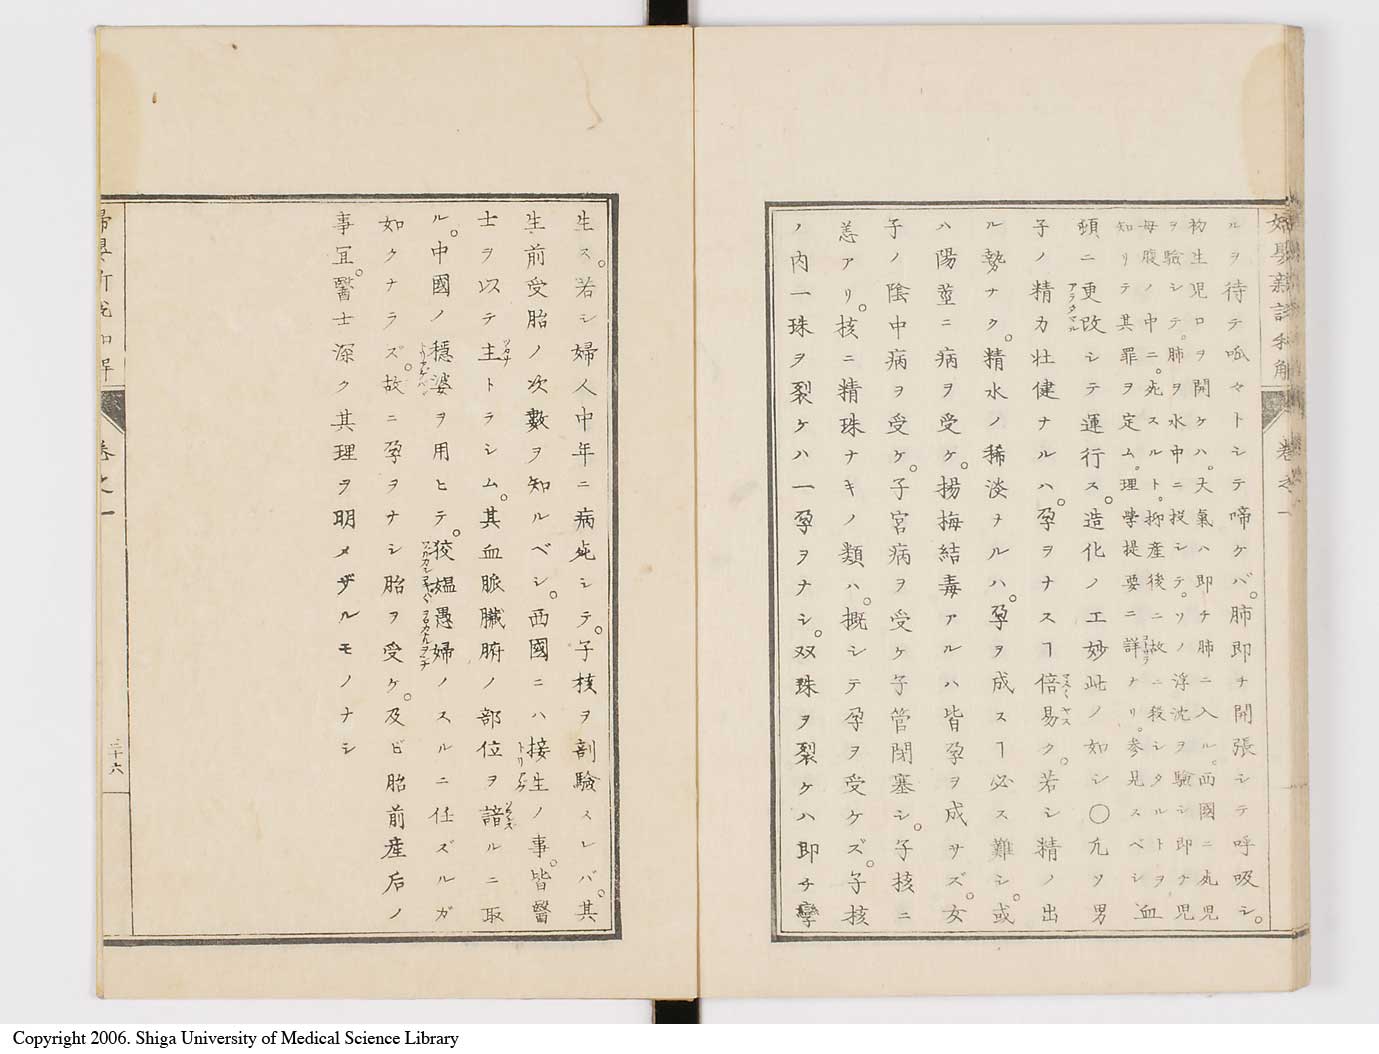 婦嬰新説和解
卷之一
ルヲ待テ呱々トシテ啼ケバ。肺即チ開張シテ呼吸シ。
初生児口ヲ開ケハ。大氣ハ即チ肺ニ入ル。西國ニ死児
ヲ驗シテ。肺ヲ水中ニ投シテ。ソノ浮沈ヲ驗シ即チ児
母腹ノ中ニ。死スルト。抑産後ニ故ニ殺シタルトヲ
知リテ其罪ヲ定ム。理學提要ニ詳ナリ。参見スベシ 血
頭ニ更改シテ運行ス。造化ノ工妙此ノ如シ〇凢ソ男
アラタマル
子ノ精力壮健ナルハ。孕ヲナスヿ倍易ク。若シ精ノ出
マス〳〵ヤス
ル勢ナク。精水ノ稀淡ナルハ。孕ヲ成スヿ必ス難シ。或
ハ陽莖ニ病ヲ受ケ。揚梅結毒アルハ皆孕ヲ成サズ。女
子ノ陰中病ヲ受ケ。子宮病ヲ受ケ子管閉塞シ。子核ニ
恙アリ。核ニ精珠ナキノ類ハ。概シテ孕ヲ受ケズ。子核
ノ内一珠ヲ裂ケハ一孕ヲナシ。双珠ヲ裂ケハ即チ孿
生ス。若シ婦人中年ニ病死シテ。子核ヲ剖驗スレバ。其
生前受胎ノ次數ヲ知ルベシ。西國ニハ接生ノ事。皆醫
トリアゲ
士ヲ以テ主トラシム。其血脈臓腑ノ部位ヲ諳ルニ取
ソランス
ル。中國ノ穏婆ヲ用ヒテ。狡媼愚婦ノスルニ任ズルガ
トリアゲババ
如クナラズ。故ニ孕ヲナシ胎ヲ受ケ。及ビ胎前産后ノ
事冝。醫士深ク其理ヲ明メザルモノナシ
卷之一
三十六
Copyright 2006. Shiga University of Medical Science Library